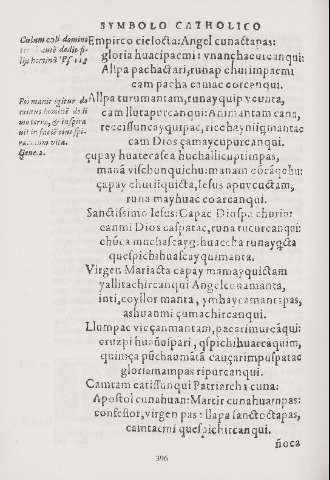 SYMBOLO CATHOLICO
Cælum cæli domino
terrã autē dedit fi-
lijs hominũ Psf 113
Empireo cieloɕta: Angel cunaɕtapas:
gloria huacipacmi: ynanchacurcanqui:
Allpa pachaɕtari, runap churimpacmi
cam pacha camac corcanqui.
Formauit igitur do
minus hominẽ de li
mo terræ, & inspira
uit in faciẽ eius spi-
raculum vitæ.
Gene. 2.
Allpa turumantam, runayquip vcunta,
cam llutapurcanqui: Animantam cana,
reccissuncayquipac, ricchayniiqmantac
cam Dios çamaycupurcanqui.
çupay huateca fca huchallicuptimpas,
manã vischunquichu: manam cõcãqchu:
çapay churiiquicta, Iesus apuycuɕtam,
runa mayhuac coarcanqui.
Sanctissimo Iesus: Capac Diospa churin:
canmi Dios caspatac, runa tucurcanqui:
chũca muchascayq: huaccha runayqɕta
quespichihuascayquimanta.
Virgen Mariaɕta çapay mamayquiɕtam
yallitachircanqui Angelconamanta,
inti, coyllor manta, ymhaycamantapas,
ashuanmi çumachircanqui.
Llumpac vicçanmantam, pacarimurcãqui:
cruzpi huañuspari, qspichihuarcaquim,
quimça pũchaumãtã cauçarimpuspatac
gloriamampas ripurcanqui.
Camtam catissunqui Patriarcha cuna:
Apostol cunahuan: Martir cunahuampas:
confessor, virgen pas: llapa sanɕtoɕtapas,
camtacmi quespichircanqui.
ñoca
396